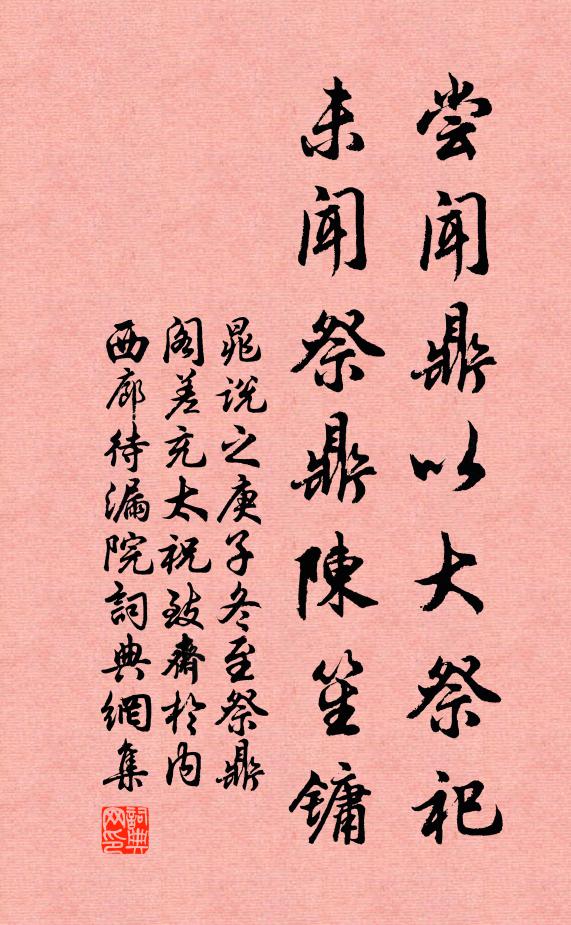 尝闻鼎以大祭祀
未闻祭鼎陳笙鏞
晁说之庚子冬至祭鼎
阁差充太祝致齋於内
西廊待漏院詞典網集
詞典网印